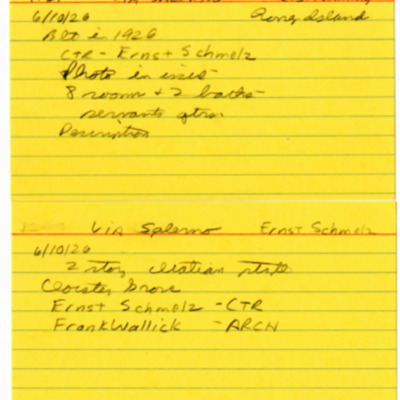 6/10/26
Blt in 1926
CTR - Ernst Schmelz
Photo in issue
8 room + 2 baths
servants qtrs
Description
Via Salerno Ernst Schmelz
6/10/26
2 story style
Cloister Grove
Ernst Schmelz - CTR
Frank Wallick - ARCH